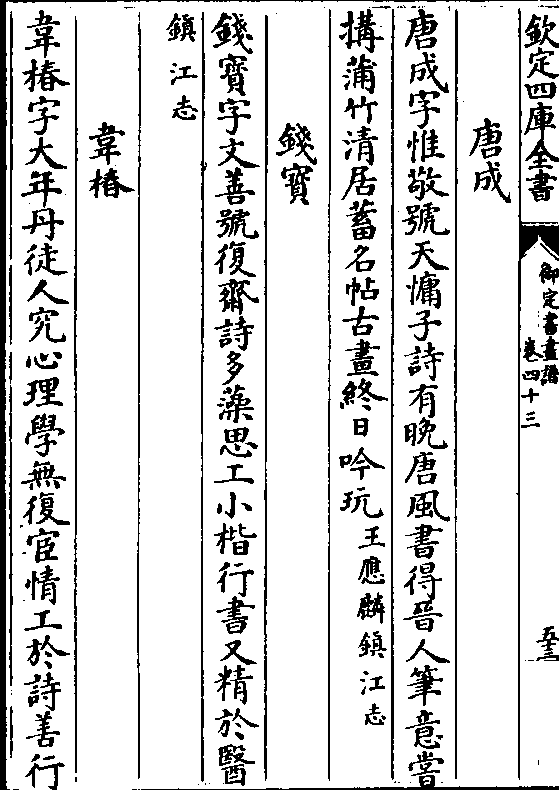 欽定四庫全書
御定書畫譜
卷四十三
五三
唐成
唐成字惟敬號天慵子詩有晚唐風書得晉人筆意嘗
搆蒲竹清居蓄名帖古畫終日吟玩王應麟鎮江志
錢寶
錢寶字文善號復齋詩多藻思工小楷行書又精於醫
鎮江志
韋椿
韋椿字大年丹徒人究心理學無復宦情工於詩善行